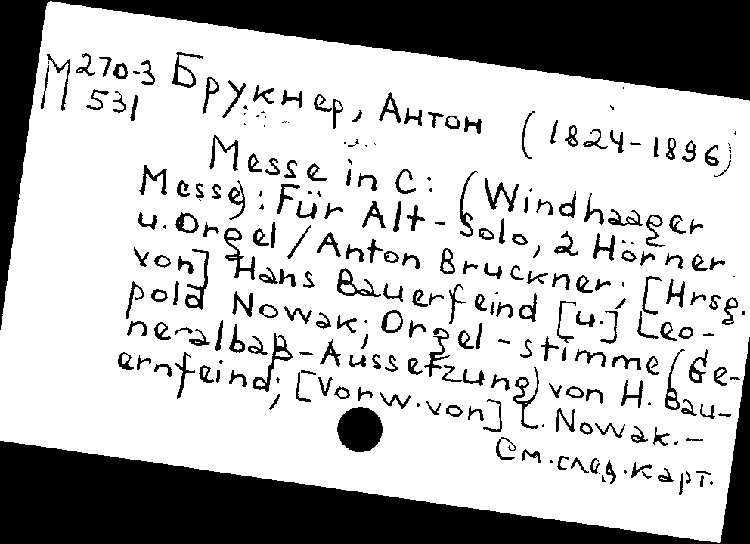 М 270-3 Брукнер, Антон (1824-1896)
531
Messe in C: (Windhaager
Messe): Für Alt-Solo, 2 Hörner
u. Orgel / Anton Bruckner; [Hrsg.
von] Hans Bauerfeind [u.] Leo-
pold Nowak; Orgel-stimme (Ge-
neralbaß-Aussetzung) von H. Bau-
ernfeind; [Vorw. von] L. Nowak.-
См. след. карт.